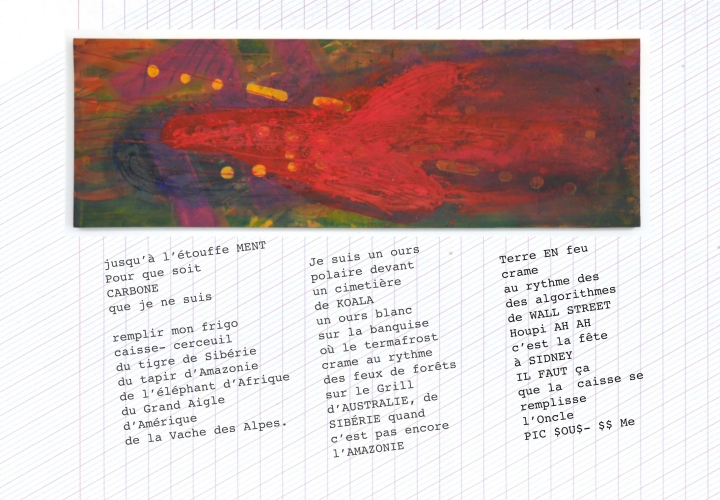 jusqu'à l'étouffe MENT
Pour que soit
CARBONE
que je ne suis
remplir mon frigo
caisse- cerceuil
du tigre de Sibérie
du tapir d'Amazonie
de l'éléphant d'Afrique
du Grand Aigle
d'Amérique
de la Vache des Alpes.
Je suis un ours
polaire devant
un cimetière
de KOALA
un ours blanc
sur la banquise
où le termafrost
crame au rythme
des feux de forêts
sur le Grill
d'AUSTRALIE, de
SIBÉRIE quand
c'est pas encore
l'AMAZONIE
Terre EN feu
crame
au rythme des
des algorithmes
de WALL STREET
Houpi AH AH
c'est la fête
à SIDNEY
IL FAUT ça
que la caisse se
remplisse
l'Oncle
PIC $OU$- $$ Me